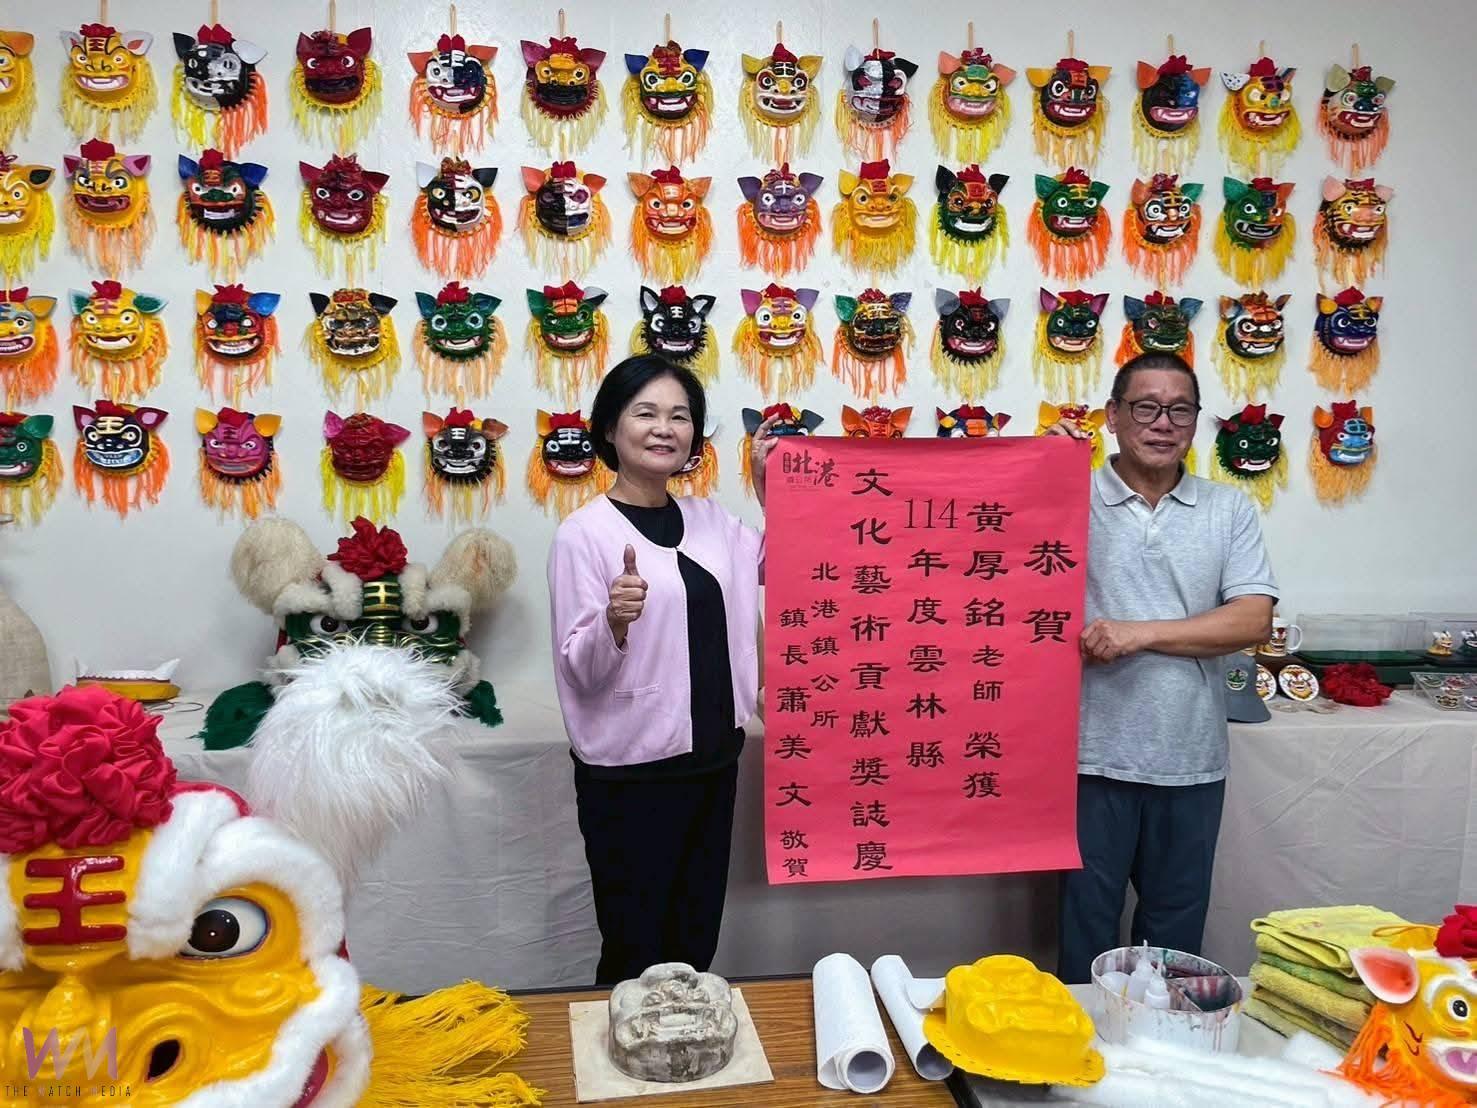 恭賀
黃厚銘老師 榮獲
114年度雲林縣
文化藝術貢獻獎誌慶
北港鎮公所
鎮長蕭美文 敬賀
北港
鎮公所
王
WM
THE WATCH MEDIA